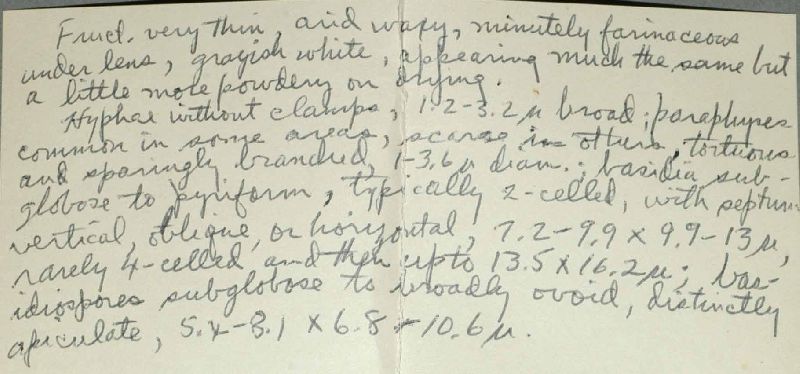 Fruct. very thin, arid waxy, minutely farinaceous
under lens, grayish white, appearing much the same but
a little more powdery on drying.
Hyphae without clamps, 1.2-3.2 µ broad; paraphyses
common in some areas, scarce in others, tortuous
and sparingly branched, 1-3.6 µ diam.; basidia sub-
globose to pyriform, typically 2-celled, with septum
vertical, oblique, or horizontal, 7.2-9.9 x 9.9-13 µ,
rarely 4-celled and then up to 13.5 x 16.2 µ; bas-
idiospores subglobose to broadly ovoid, distinctly
apiculate, 5.4-8.1 x 6.8-10.6 µ.